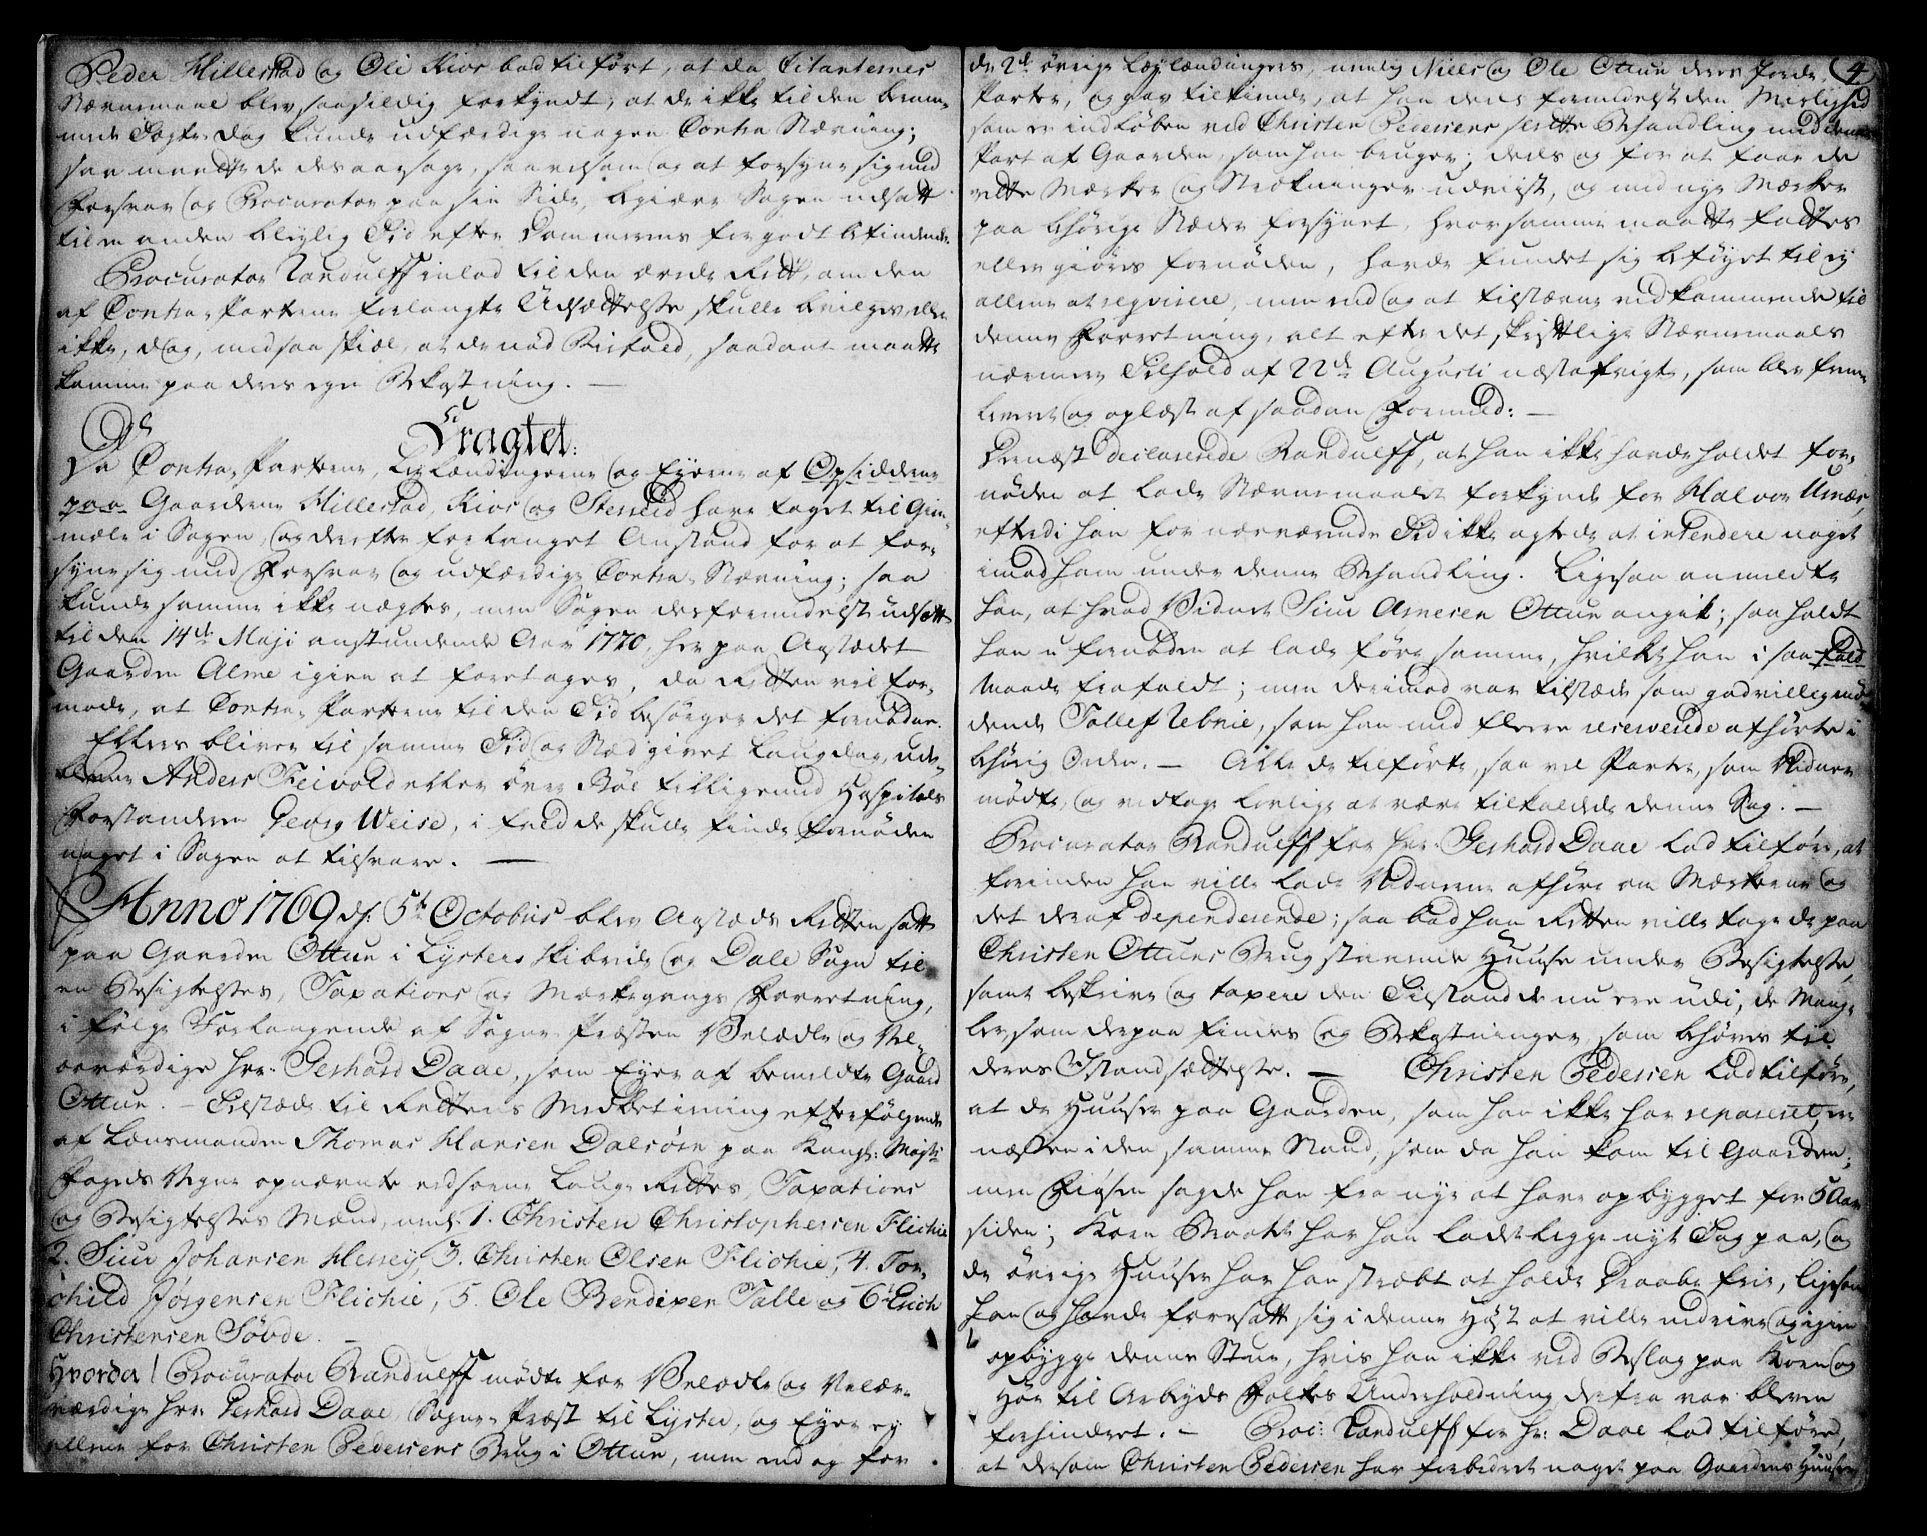 Peder Hillestad og Ole Kior bad tilført, at da Citanternes
Stævnemaal blev saa sildig forkyndt, at de ikke til den beram-
mede Tægte-Dag kunde udfærdige nogen Contra-Stævning;
saa maatte de desaarsage, saavelsom og at forsyne sig med
Forsvar og Procurator paa sin Side, begiære Sagen udsatt
til en anden beleylig Tid efter Dommerens forgodtbefindende.
Procurator Randulff indlod til den ærede Rett, om den
af Contra-Parterne forlangte Udsættelse skulle bevilges eller
ikke, dog, med saa skiæl, at de ved Bifald, saadant maatte
komme paa deres egen Bekostning. —
Fragtet:
Da Contra-Parterne, Leylændingerne og Eyerne af Opsidderne
paa Gaardene Hillestad, Kior og Stensed have taget til Gien-
mæle i Sagen, og derefter forlanget Anstand for at for-
syne sig med Forsvar og udfærdige Contra-Stævning; saa
kunde samme ikke nægtes, men Sagen desformedelst udsættes
til den 14de Maji anstundende Aar 1770, her paa Aastædet
Gaarden Alme igien at foretages, da Retten vil for-
mode, at Contra-Parterne til den Tid besørger det fornødne.
Ellers bliver til samme Tid og Stæd givet Laugdag, ude-
blevne Anders Feivold eller øvre Bøe tilligemed Hospitals
Forstanderen Georg Weise, i fald de skulle finde fornøden
noget i Sagen at tilsvare. —
Anno 1769 d. 5te Octobris blev Aastæds Retten satt
paa Gaarden Ottun i Lysters Skibrede og Dale Sogn til
en Besigtelses, Taxations og Mærkegangs Forretning,
i følge Forlangende af Sogne-Præsten Velædle og Vel-
ærværdige Hr. Gerhard Daae, som Eyer af bemeldte Gaard
Ottun. Tilstæde til Rettens Medbetiening efterfølgende
af Lænsmanden Thomas Hansen Dalsøren paa Kongl: Mayts
Fogeds Vegne opnævnte eedsorne Laug-Rettes, Taxations
og Besigtelses Mænd, nml. 1. Christen Christophersen Flichie
2. Siur Johansen Hessey, 3. Christen Olsen Flichie, 4. Tor-
child Jørgensen Flichie, 5. Ole Bendixen Talle og 6. Erich
Christensen Søvde. —
Hvorda! Procurator Randulff mødte for Velædle og Velær-
værdige Hr. Gerhard Daae, Sogne-Præst til Lyster, og Eyer ey
allene for Christen Pedersens Brug i Ottun, men end og for
de 2de øvrige Leylændingers, nemlig Niels og Ole Ottun deres Jorde-
Parter, og gav tilkiende, at han deels formedelst den Uvished
som er indløben ved Christen Pedersens slette Behandling med denne
Part af Gaarden, som han bruger; deels og for at faae de
rette Mærker og Strekninger udviist, og med nye Mærker
paa behørige Stæder forsynet, hvor samme maatte fattes
eller giøres fornøden, havde fundet sig beføyet til ey
allene at reqvirere, men end og at tilstævne vedkommende til
denne Forretning, alt efter det skriftlige Stævnemaals
nærmere Tilhold af 22de Augusti næstafvigte, som blev frem-
leveret og oplæst af saadan Formeld: —
Dernæst declarerede Randulff, at han ikke havde holdet for-
nøden at lade Stævnemaalet forkynde for Halvor Urnæs,
efterdi han for nærværende Tid ikke agtede at intendere noget
imod ham under denne Behandling. Ligesaa anmeldte
han, at hvad Vidnet Siur Arnesen Ottun angik; saa holdt
han ufornøden at lade føre samme, hvilket han i saa Fald
Maade frafaldt; men derimod var tilstæde som godvillig mø-
dende Tollef Uebnie, som han med flere reserverede afhørte i
behørig Orden. — Alle de tilførte, saa vel Parter, som Vidner
mødte, og vedtog lovlige at være tilkaldede denne Sag. —
Procurator Randulff for Hr. Gerhard Daae lod tilføre, at
forinden han ville lade Vidnerne afhøre om Mærkerne og
det deraf dependerende; saa bad han Retten ville tage de paa
Christen Ottuns Brug staaende Huuse under Besigtelse,
samt beskrive og taxere den Tilstand de nu ere udi, de Mang-
ler, som derpaa findes og Bekostninger, som behøves til
deres Istandsættelse. — Christen Pedersen lod tilføre,
at de Huuser paa Gaarden, som han ikke har reparered, er
næsten i den samme Stand, som da han kom til Gaarden;
men Fiøsen sagde han fra nye at have opbygget for 5 Aar
siden; Korn-Braaten har han ladet legge nyt Tag paa, og
de øvrige Huuser har han stræbt at holde Draabe frie, ligesom
han og havde foresatt sig i denne Høst at ville nedrive og igien
opbygge denne Stue, hvis han ikke ved Beslag paa Korn og
Høe til Arbeyds Folkes Underholdning derfra var bleven
forhindret. — Proc: Randulff for Hr: Daae lod tilføre,
at dersom Christen Pedersen har forbedret noget paa Gaardens Huuser
4